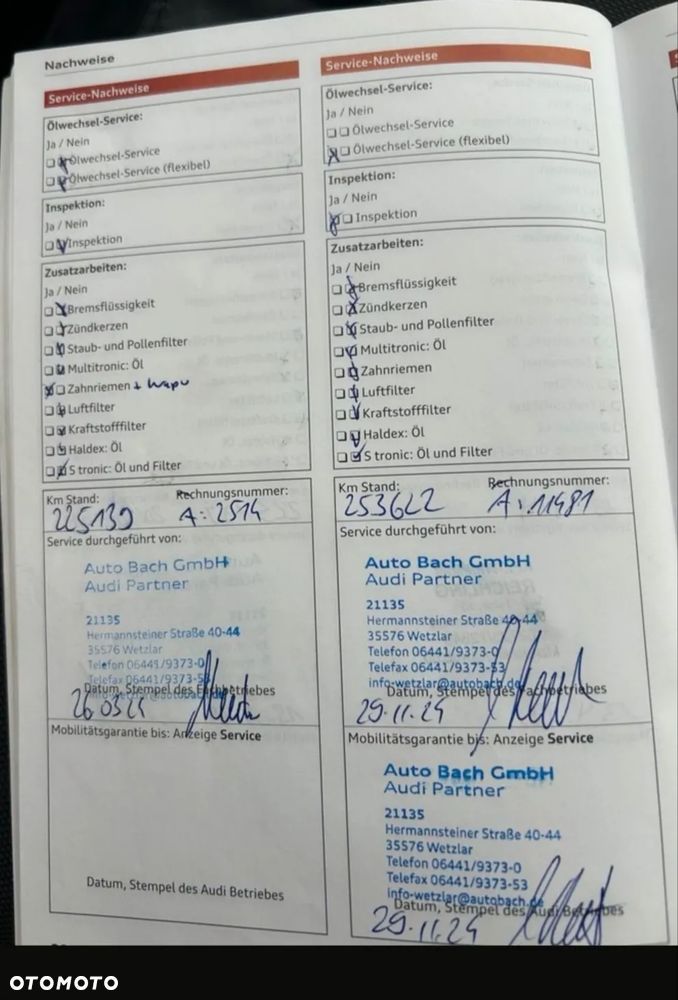 Nachweise
Service-Nachweise
Ölwechsel-Service:
Ja / Nein
Ölwechsel-Service
Ölwechsel-Service (flexibel)
Inspektion:
Ja / Nein
Inspektion
Zusatzarbeiten:
Ja / Nein
Bremsflüssigkeit
Zündkerzen
Staub- und Pollenfilter
Multitronic: Öl
Zahnriemen + Wapu
Luftfilter
Kraftstofffilter
Haldex: Öl
S tronic: Öl und Filter
Km Stand: Rechnungsnummer:
225139 A: 2514
Service durchgeführt von:
Auto Bach GmbH
Audi Partner
21135
Hermannsteiner Straße 40-44
35576 Wetzlar
Telefon 06441/9373-0
Telefax 06441/9373-53
info-wetzlar@autobach.de
Datum, Stempel des Fachbetriebes
26.03.24
Mobilitätsgarantie bis: Anzeige Service
Datum, Stempel des Audi Betriebes
Service-Nachweise
Ölwechsel-Service:
Ja / Nein
Ölwechsel-Service
Ölwechsel-Service (flexibel)
Inspektion:
Ja / Nein
Inspektion
Zusatzarbeiten:
Ja / Nein
Bremsflüssigkeit
Zündkerzen
Staub- und Pollenfilter
Multitronic: Öl
Zahnriemen
Luftfilter
Kraftstofffilter
Haldex: Öl
S tronic: Öl und Filter
Km Stand: Rechnungsnummer:
253622 A: 11481
Service durchgeführt von:
Auto Bach GmbH
Audi Partner
21135
Hermannsteiner Straße 40-44
35576 Wetzlar
Telefon 06441/9373-0
Telefax 06441/9373-53
info-wetzlar@autobach.de
Datum, Stempel des Fachbetriebes
29.11.24
Mobilitätsgarantie bis: Anzeige Service
Auto Bach GmbH
Audi Partner
21135
Hermannsteiner Straße 40-44
35576 Wetzlar
Telefon 06441/9373-0
Telefax 06441/9373-53
info-wetzlar@autobach.de
Datum, Stempel des Audi Betriebes
29.11.24
OTOMOTO